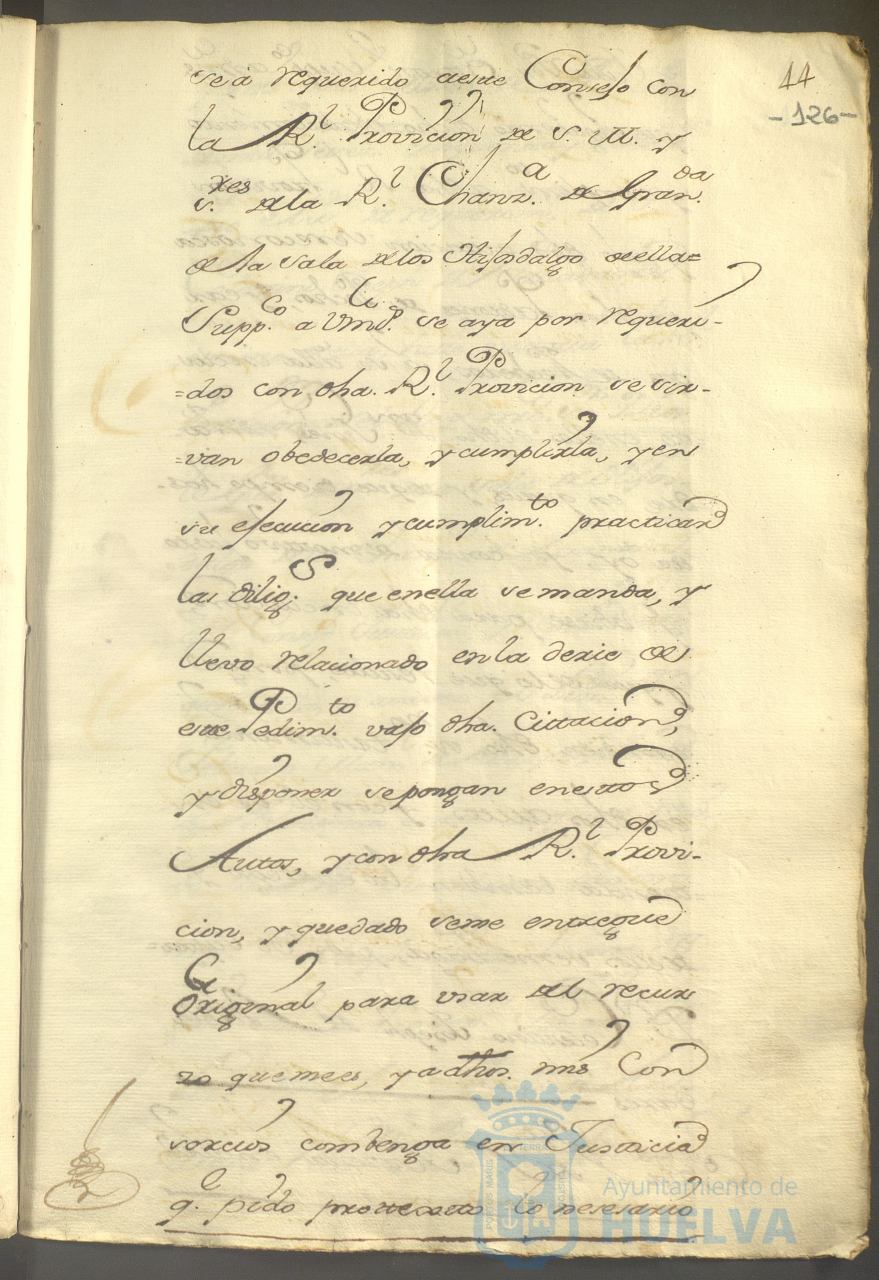 44
-126-
sea requerido aeste Consejo con
la Rl. Provicion de S. M. y
s.res de la Rl. Chanz.a de Gran.da
de la sala de los Hijosdalgo de ella=
Supp.co a Vmd.s se aya por requeri-
=dos con dha. Rl. Provicion se sir-
=van obedecerla, y cumplirla, y en
su ejecucion y cumplim.to practicar
las dilig.s que en ella se manda, y
llevo relacionado en la Serie de
este Pedim.to vajo dha. Cittacion,
y disponer se pongan en estos
Autos, y con dha Rl. Provi-
cion, y quedado seme entregue
Original para usar del recur
zo que mees, y a dhos. mis Con
sorcios combenga en Justicia
q.e pido protextto lo nesesario
Ayuntamiento de
HUELVA